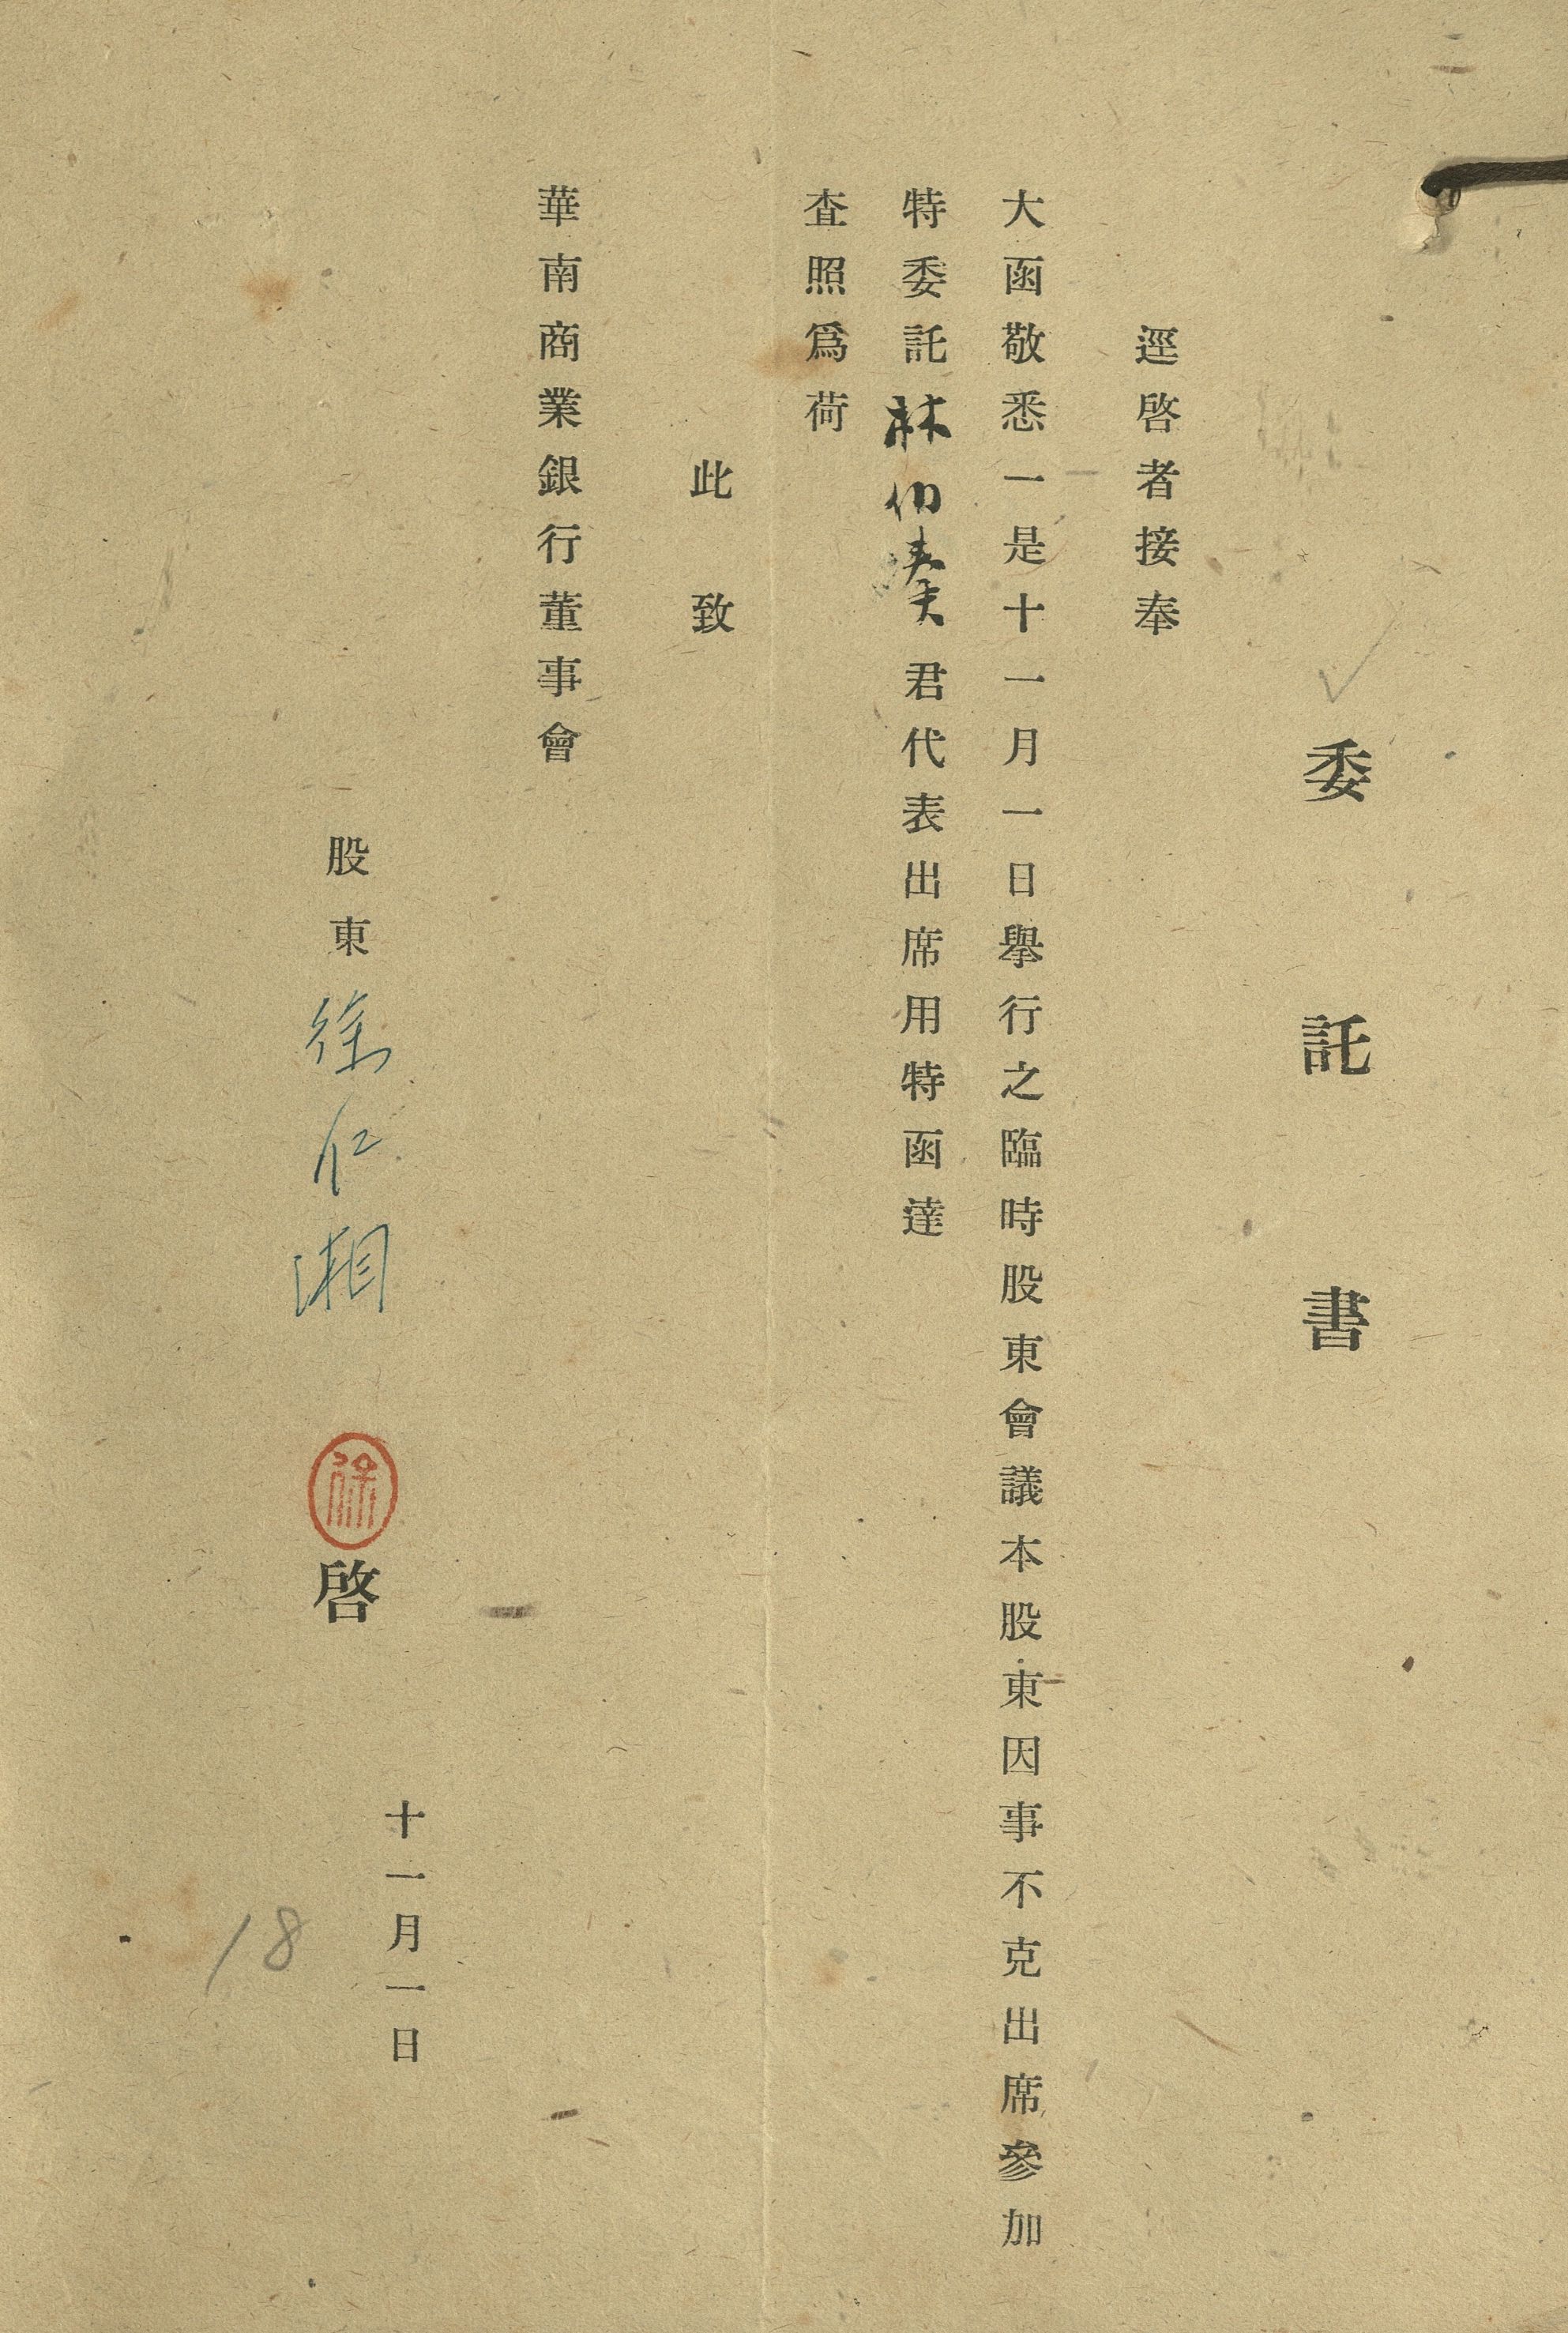 委託書
逕啓者接奉
大函敬悉一是十一月一日舉行之臨時股東會議本股東因事不克出席參加
特委託林伯奏君代表出席用特函達
査照爲荷
此致
華南商業銀行董事會
十一月一日
股東徐仁湘 徐 啓
18